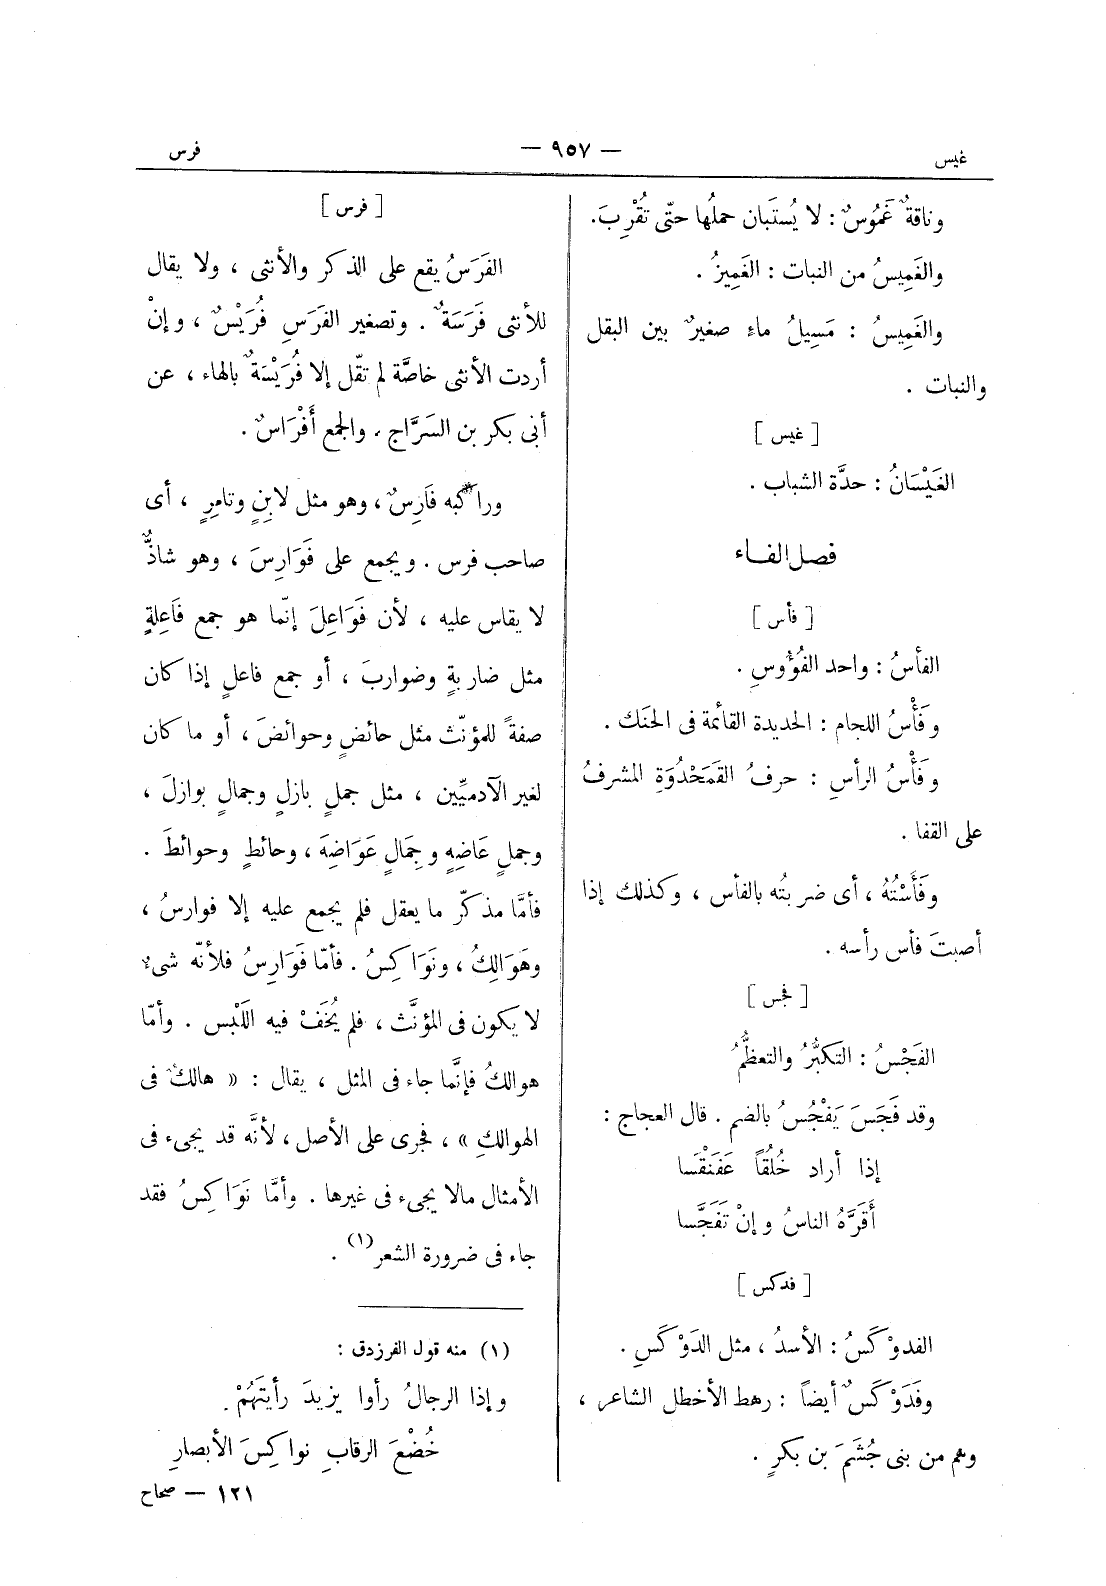 غيس
— ٩٥٧ —
فرس
وناقةٌ غَمُوسٌ : لا يُستَبان حملُها حتّى تُقْرِبَ.
والغَمِيسُ من النبات : الغَمِيزُ .
والغَمِيسُ : مَسِيلُ ماءٍ صغيرٌ بين البقل
والنبات .
[ غيس ]
الغَيْسَانُ : حدَّة الشباب .
فصل الفاء
[ فأس ]
الفأسُ : واحد الفُؤُوسِ .
وفَأْسُ اللجام : الحديدة القائمة فى الحنَك .
وفَأْسُ الرأسِ : حرفُ القَمَحْدُوَةِ المشرفُ
على القفا .
وفَأَسْتُهُ ، أى ضربتُه بالفأس ، وكذلك إذا
أصبتَ فأس رأسه .
[ فجس ]
الفَجْسُ : التكبُّرُ والتعظُّمُ
وقد فَجَسَ يَفْجُسُ بالضم . قال العجاج :
إذا أراد خُلُقاً عَفَنْقَسا
أَقَرَّهُ الناسُ وإنْ تَفَجَّسا
[ فدكس ]
الفدوْكَسُ : الأسدُ ، مثل الدَوْكَسِ .
وفَدَوْكَسٌ أيضاً : رهط الأخطل الشاعر ،
وهم من بنى جُشَمَ بن بكرٍ .
[ فرس ]
الفَرَسُ يقع على الذكر والأنثى ، ولا يقال
للأنثى فَرَسَةٌ . وتصغير الفَرَسِ فُرَيْسٌ ، وإنْ
أردت الأنثى خاصَّة لم تقُل إلا فُرَيْسَةٌ بالهاء ، عن
أبى بكر بن السَرَّاج . والجمع أَفْرَاسٌ .
وراكبه فَارِسٌ ، وهو مثل لابِنٍ وتامِرٍ ، أى
صاحب فرس . ويجمع على فَوَارِسَ ، وهو شاذٌّ
لا يقاس عليه ، لأن فَوَاعِلَ إنّما هو جمع فَاعِلةٍ
مثل ضاربةٍ وضواربَ ، أو جمع فاعلٍ إذا كان
صفةً للمؤنّث مثل حائضٍ وحوائضَ ، أو ما كان
لغير الآدميِّين ، مثل جملٍ بازلٍ وجمالٍ بوازلَ ،
وجملٍ عَاضِهٍ وجِمَالٍ عَوَاضِهَ ، وحائطٍ وحوائطَ .
فأمَّا مذكّر ما يعقل فلم يجمع عليه إلا فوارسُ ،
وهَوَالِكُ ، ونَوَاكِسُ . فأمّا فَوَارِسُ فلأنّه شىءٌ
لا يكون فى المؤنَّث ، فلم يُخَفْ فيه اللَبْس . وأمّا
هوالكُ فإنَّما جاء فى المثل ، يقال : « هالكٌ فى
الهوالكِ » ، فجرى على الأصل ، لأنَّه قد يجىء فى
الأمثال مالا يجىء فى غيرها . وأمَّا نَوَاكِسُ فقد
جاء فى ضرورة الشعر (١) .
(١) منه قول الفرزدق :
وإذا الرجالُ رأوا يزيدَ رأيتَهُمْ .
خُضْعَ الرقابِ نواكِسَ الأبصارِ
١٢١ — صحاح